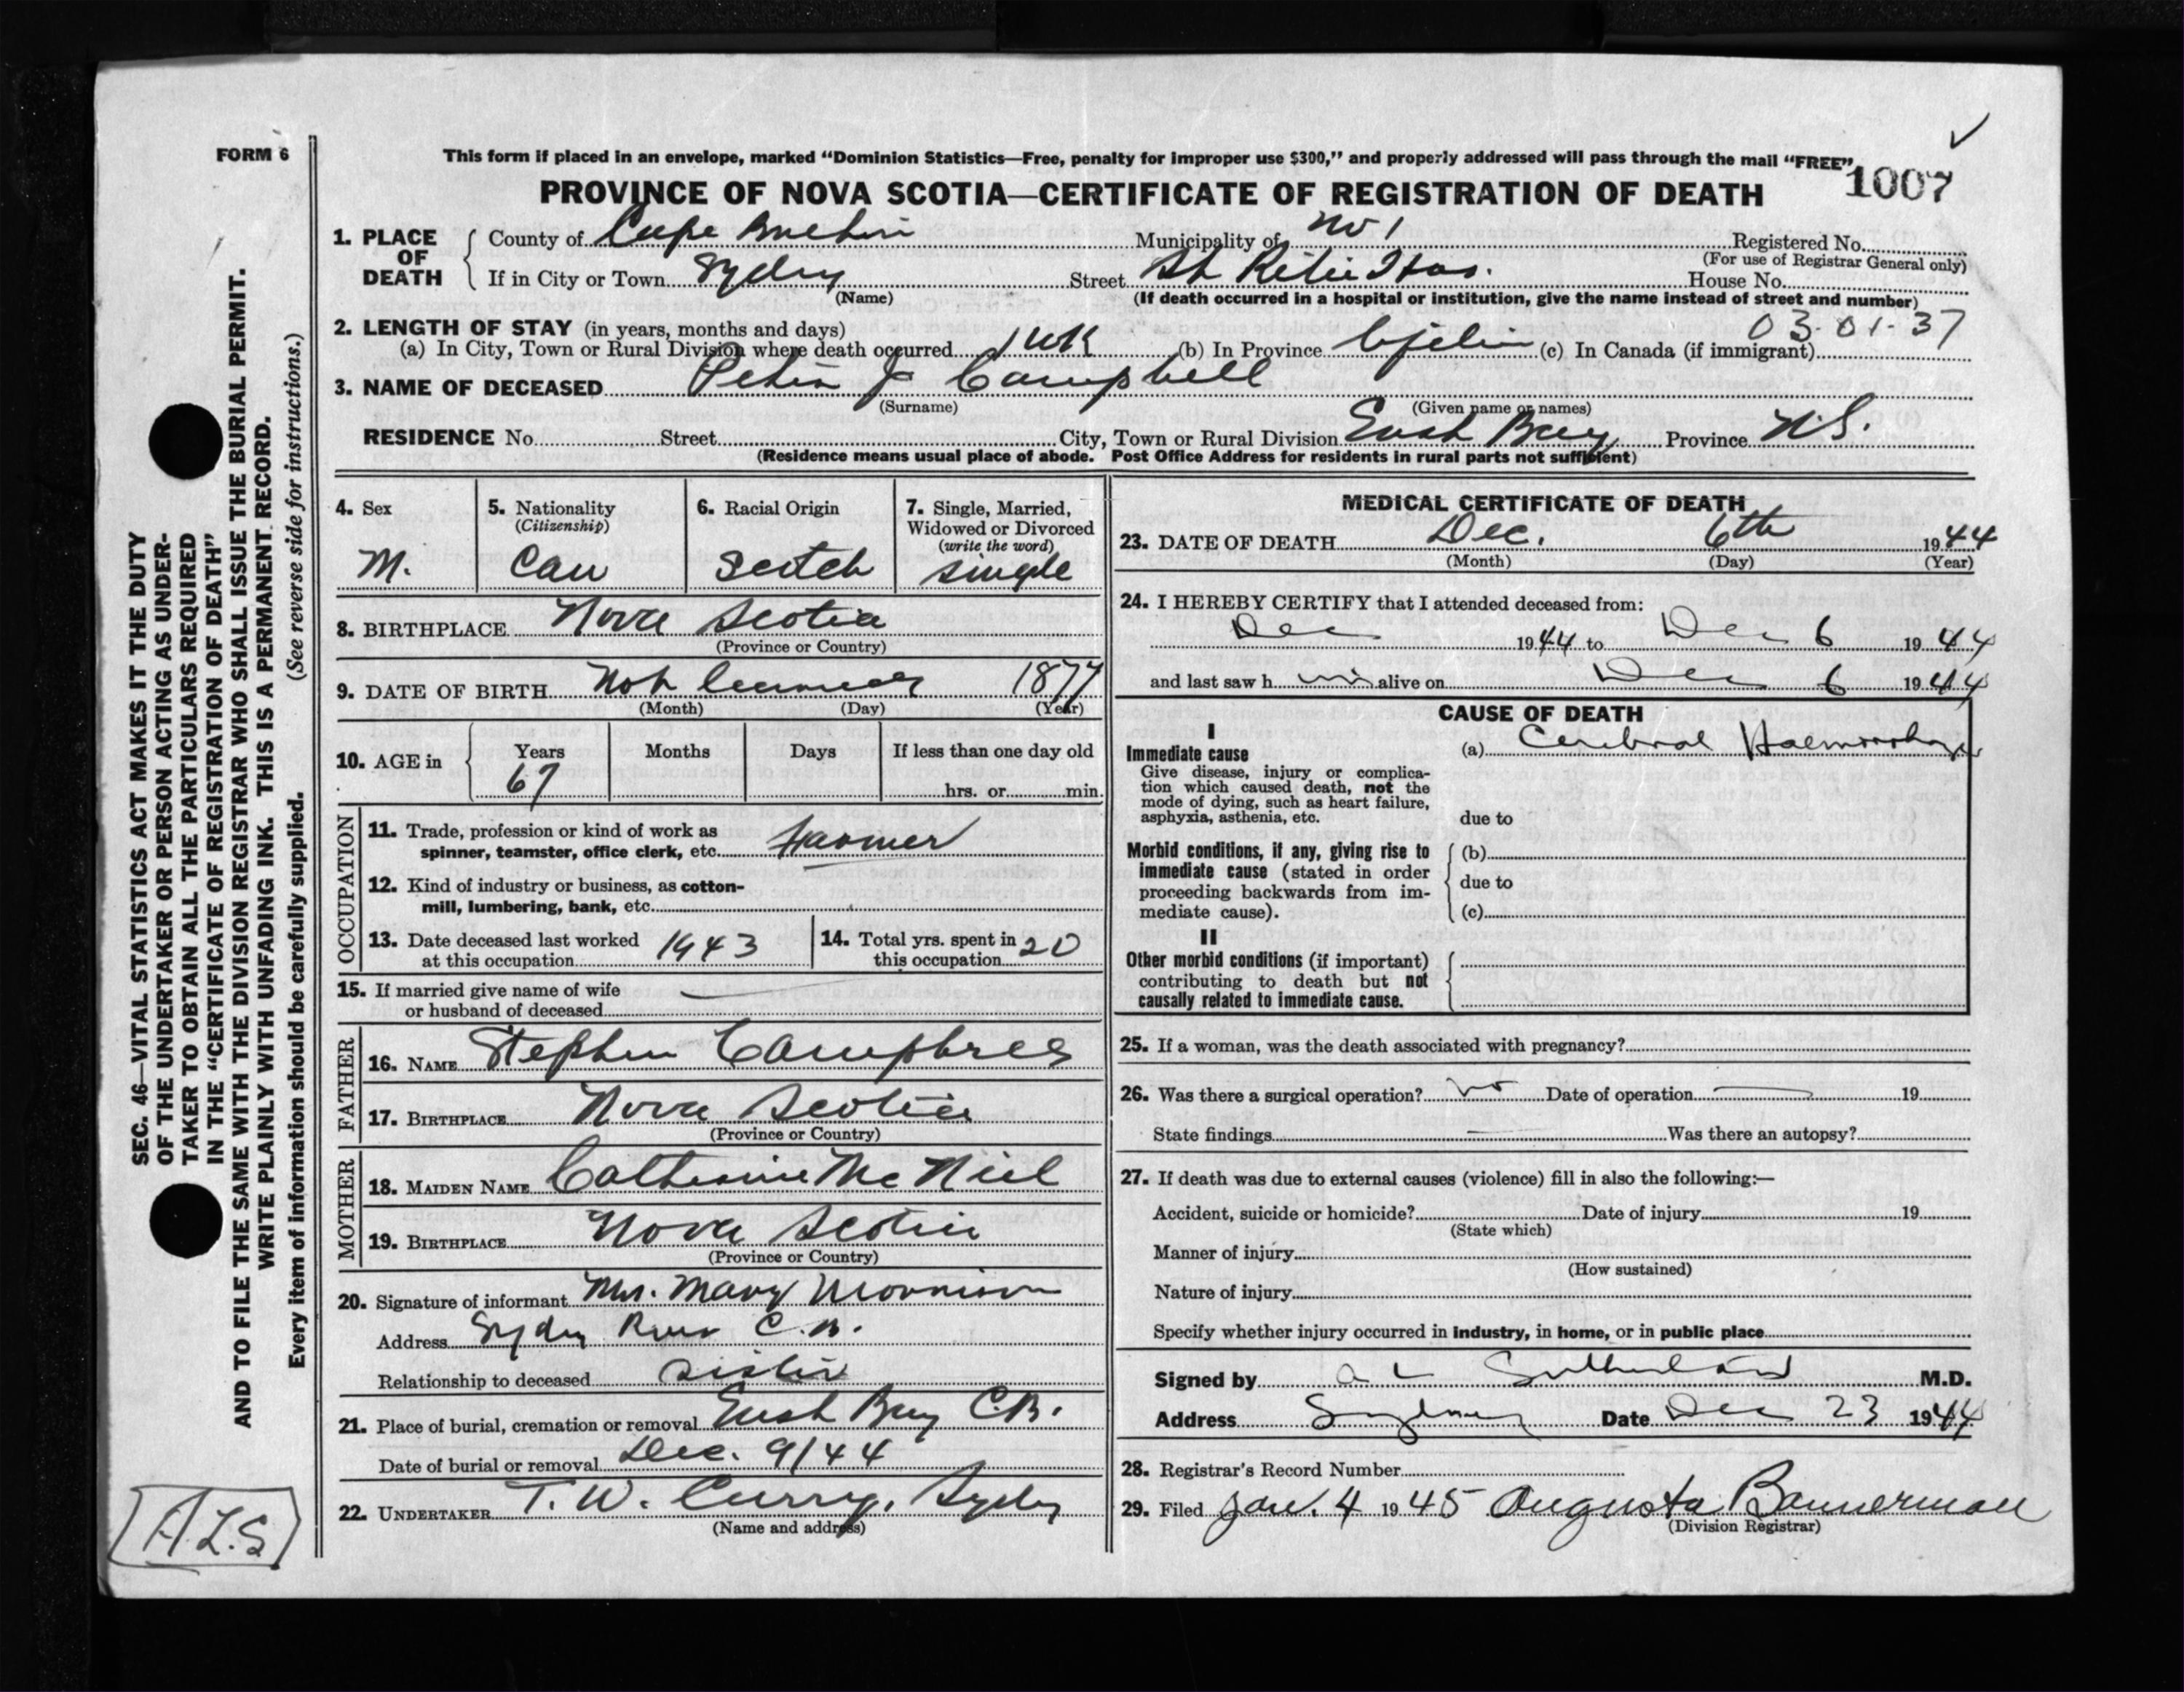 FORM 6
This form if placed in an envelope, marked “Dominion Statistics—Free, penalty for improper use $300,” and properly addressed will pass through the mail “FREE”
1007
PROVINCE OF NOVA SCOTIA—CERTIFICATE OF REGISTRATION OF DEATH
1. PLACE OF DEATH
County of Cape Breton Municipality of No 1 Registered No.
(For use of Registrar General only)
If in City or Town Sydney Street St Rita Hos. House No.
(Name) (If death occurred in a hospital or institution, give the name instead of street and number)
2. LENGTH OF STAY (in years, months and days) 03-01-37
(a) In City, Town or Rural Division where death occurred 1 wk (b) In Province Lifetime (c) In Canada (if immigrant)
3. NAME OF DECEASED Peter J Campbell
(Surname) (Given name or names)
RESIDENCE No. Street City, Town or Rural Division East Bay Province N.S.
(Residence means usual place of abode. Post Office Address for residents in rural parts not sufficient)
4. Sex M.
5. Nationality (Citizenship) Can
6. Racial Origin Scotch
7. Single, Married, Widowed or Divorced (write the word) single
8. BIRTHPLACE Nova Scotia
(Province or Country)
9. DATE OF BIRTH Not 1877
(Month) (Day) (Year)
10. AGE in Years Months Days If less than one day old
67 hrs. or min.
OCCUPATION
11. Trade, profession or kind of work as
spinner, teamster, office clerk, etc. Farmer
12. Kind of industry or business, as cotton-
mill, lumbering, bank, etc.
13. Date deceased last worked
at this occupation 1943
14. Total yrs. spent in
this occupation 20
15. If married give name of wife
or husband of deceased —
FATHER
16. NAME Stephen Campbell
17. BIRTHPLACE Nova Scotia
(Province or Country)
MOTHER
18. MAIDEN NAME Catherine Mc Niel
19. BIRTHPLACE Nova Scotia
(Province or Country)
20. Signature of informant Mrs. Mary Morrison
Address Sydney River C.B.
Relationship to deceased sister
21. Place of burial, cremation or removal East Bay C.B.
Date of burial or removal Dec. 9/44
22. UNDERTAKER T. W. Curry, Sydney
(Name and address)
MEDICAL CERTIFICATE OF DEATH
23. DATE OF DEATH Dec. 6th 1944
(Month) (Day) (Year)
24. I HEREBY CERTIFY that I attended deceased from:
Dec 1944 to Dec 6 1944
and last saw h im alive on Dec 6 1944
CAUSE OF DEATH
I
Immediate cause (a) Cerebral Haemorrhage
Give disease, injury or complica-
tion which caused death, not the
mode of dying, such as heart failure,
asphyxia, asthenia, etc. due to
Morbid conditions, if any, giving rise to (b)
immediate cause (stated in order
proceeding backwards from im- due to
mediate cause). (c)
II
Other morbid conditions (if important)
contributing to death but not
causally related to immediate cause.
25. If a woman, was the death associated with pregnancy?
26. Was there a surgical operation? No Date of operation — 19
State findings — Was there an autopsy?
27. If death was due to external causes (violence) fill in also the following:—
Accident, suicide or homicide? Date of injury 19
(State which)
Manner of injury
(How sustained)
Nature of injury
Specify whether injury occurred in industry, in home, or in public place
Signed by A L Sutherland M.D.
Address Sydney Date Dec 23 1944
28. Registrar's Record Number
29. Filed Jan. 4 1945 Augusta Bannerman
(Division Registrar)
SEC. 46—VITAL STATISTICS ACT MAKES IT THE DUTY
OF THE UNDERTAKER OR PERSON ACTING AS UNDER-
TAKER TO OBTAIN ALL THE PARTICULARS REQUIRED
IN THE “CERTIFICATE OF REGISTRATION OF DEATH”
AND TO FILE THE SAME WITH THE DIVISION REGISTRAR WHO SHALL ISSUE THE BURIAL PERMIT.
WRITE PLAINLY WITH UNFADING INK. THIS IS A PERMANENT RECORD.
Every item of information should be carefully supplied. (See reverse side for instructions.)
A.L.S